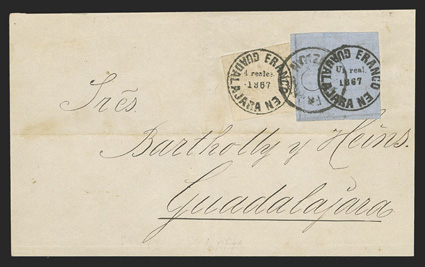 FRANCO EN GUADALAJARA
4 reales.
1867
FRANCO EN GUADALAJARA
Un real
1867
Srẽs.
Bartholly y Heins.
Guadalajara